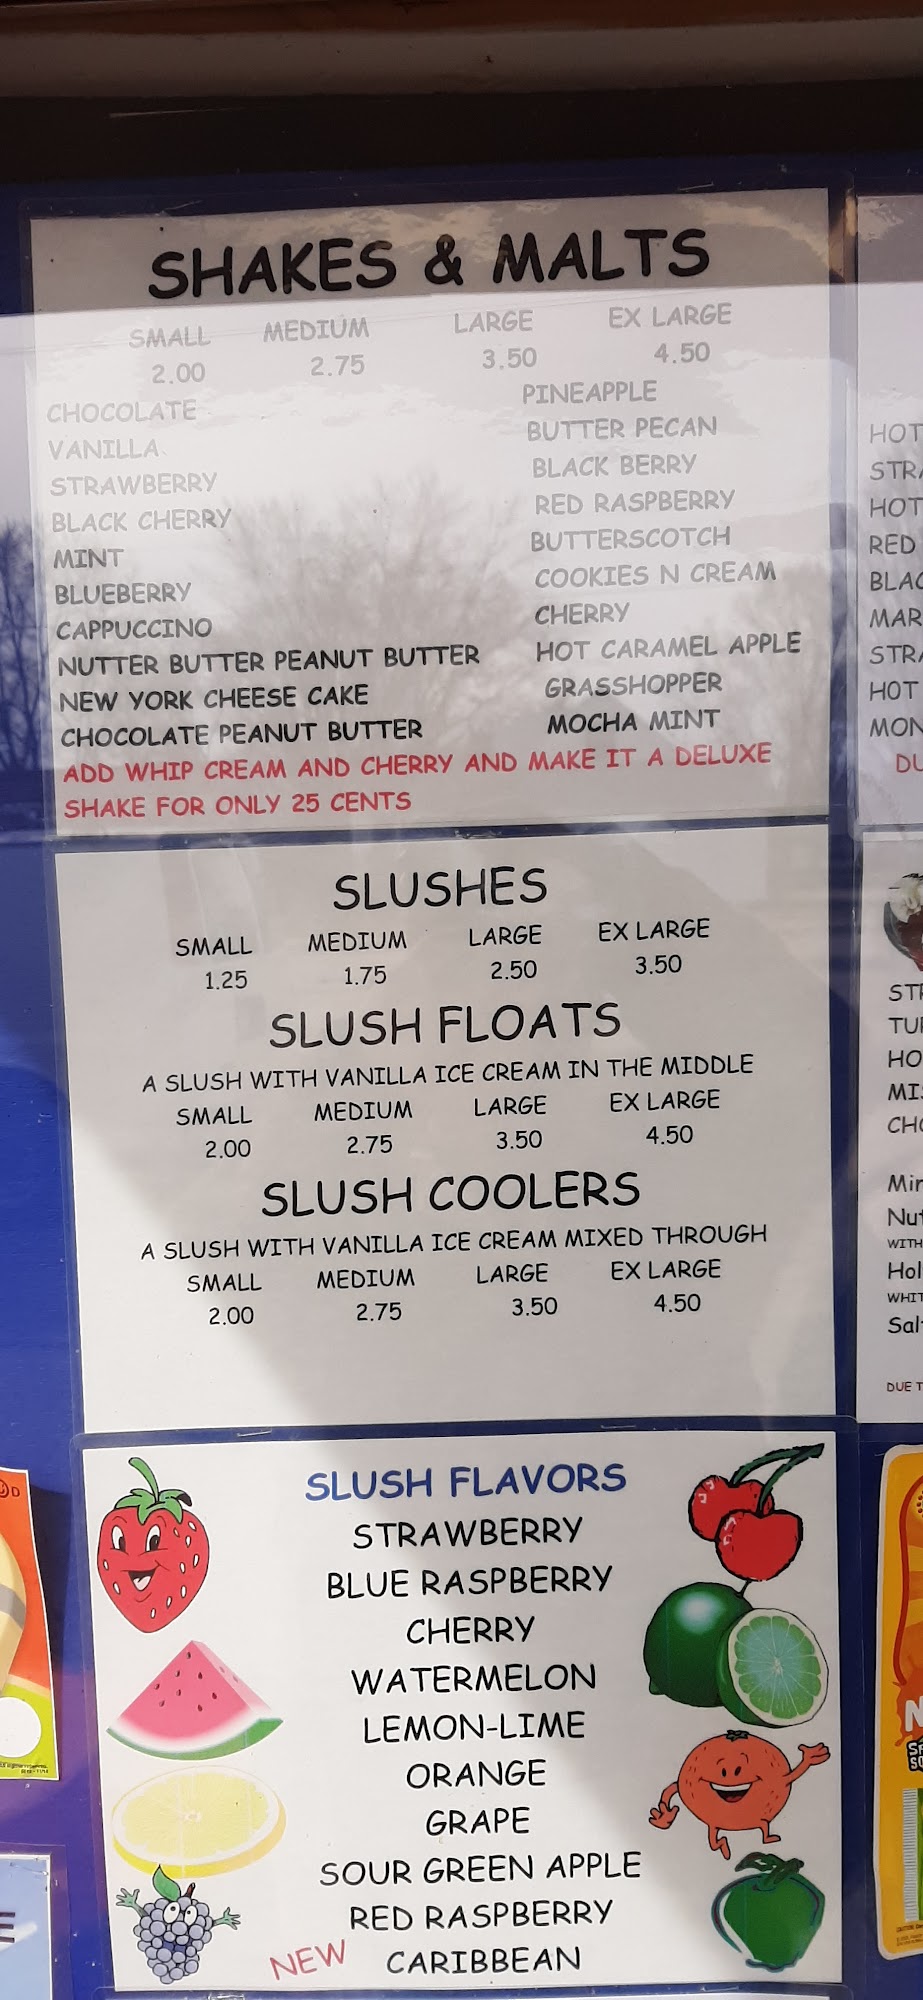 SHAKES & MALTS
SMALL MEDIUM LARGE EX LARGE
2.00 2.75 3.50 4.50
CHOCOLATE
VANILLA
STRAWBERRY
BLACK CHERRY
MINT
BLUEBERRY
CAPPUCCINO
NUTTER BUTTER PEANUT BUTTER
NEW YORK CHEESE CAKE
CHOCOLATE PEANUT BUTTER
PINEAPPLE
BUTTER PECAN
BLACK BERRY
RED RASPBERRY
BUTTERSCOTCH
COOKIES N CREAM
CHERRY
HOT CARAMEL APPLE
GRASSHOPPER
MOCHA MINT
ADD WHIP CREAM AND CHERRY AND MAKE IT A DELUXE
SHAKE FOR ONLY 25 CENTS
SLUSHES
SMALL MEDIUM LARGE EX LARGE
1.25 1.75 2.50 3.50
SLUSH FLOATS
A SLUSH WITH VANILLA ICE CREAM IN THE MIDDLE
SMALL MEDIUM LARGE EX LARGE
2.00 2.75 3.50 4.50
SLUSH COOLERS
A SLUSH WITH VANILLA ICE CREAM MIXED THROUGH
SMALL MEDIUM LARGE EX LARGE
2.00 2.75 3.50 4.50
SLUSH FLAVORS
STRAWBERRY
BLUE RASPBERRY
CHERRY
WATERMELON
LEMON-LIME
ORANGE
GRAPE
SOUR GREEN APPLE
RED RASPBERRY
NEW CARIBBEAN
HOT
HOT
RED
HOT
DUE T